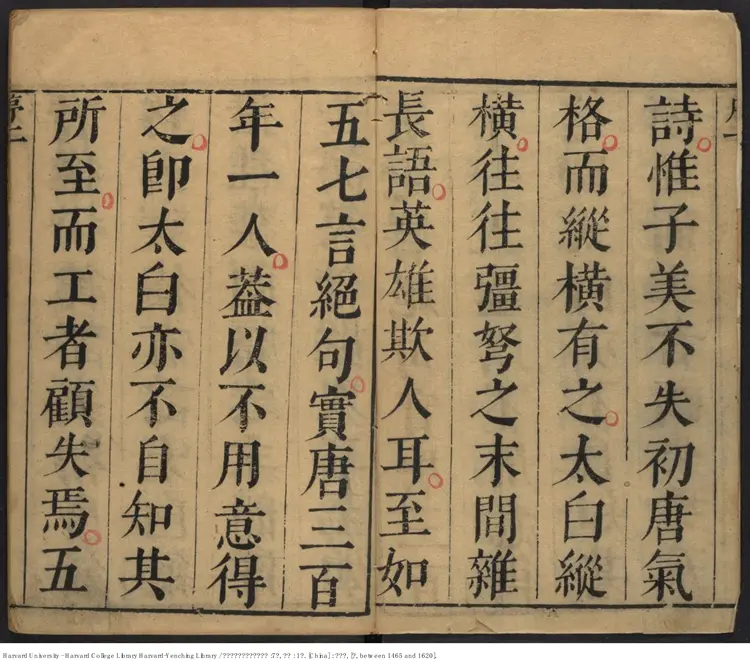 詩惟子美不失初唐氣
格而縱橫有之太白縱
橫往往彊弩之末間雜
長語英雄欺人耳至如
五七言絕句實唐三百
年一人葢以不用意得
之卽太白亦不自知其
所至而工者顧失焉五
Harvard University - Harvard College Library Harvard-Yenching Library / ???????????? :??, ?? : 1?. [China] : ???, [?, between 1465 and 1620].